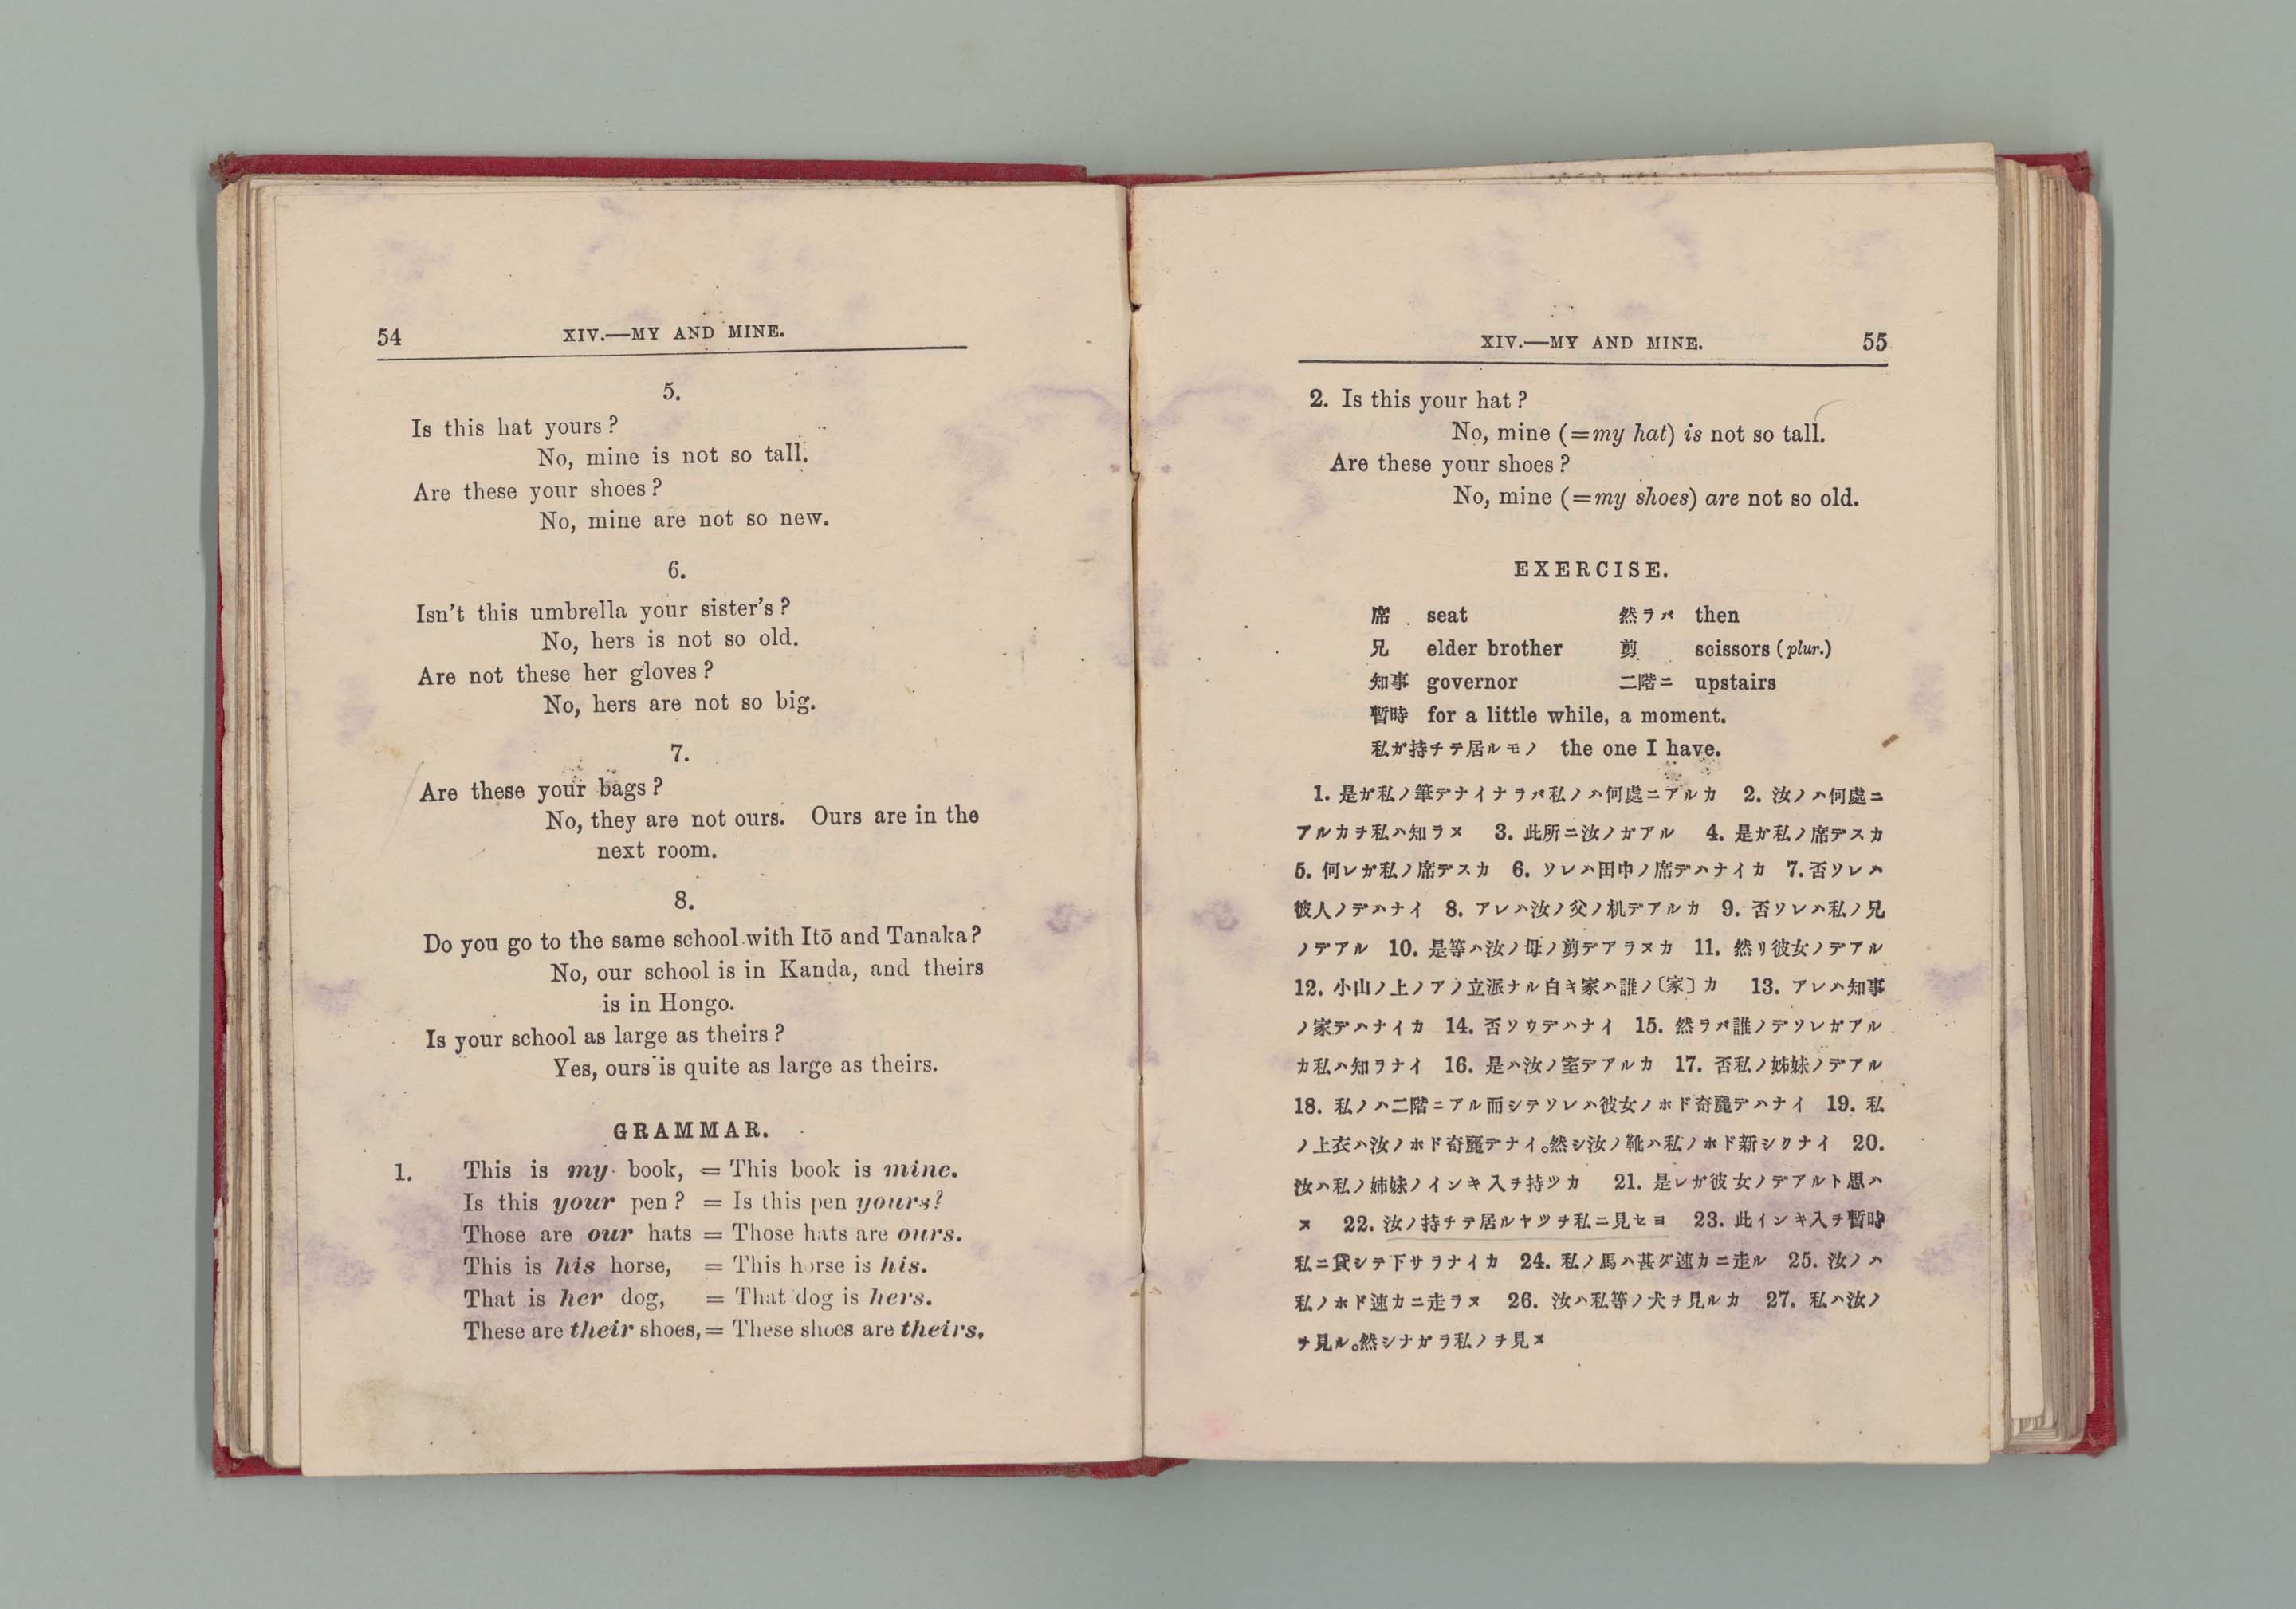 54 XIV.—MY AND MINE.
5.
Is this hat yours?
No, mine is not so tall.
Are these your shoes?
No, mine are not so new.
6.
Isn't this umbrella your sister's?
No, hers is not so old.
Are not these her gloves?
No, hers are not so big.
7.
Are these your bags?
No, they are not ours. Ours are in the
next room.
8.
Do you go to the same school with Itō and Tanaka?
No, our school is in Kanda, and theirs
is in Hongo.
Is your school as large as theirs?
Yes, ours is quite as large as theirs.
GRAMMAR.
1. This is my book, = This book is mine.
Is this your pen? = Is this pen yours?
Those are our hats = Those hats are ours.
This is his horse, = This horse is his.
That is her dog, = That dog is hers.
These are their shoes, = These shoes are theirs.
XIV.—MY AND MINE. 55
2. Is this your hat?
No, mine (=my hat) is not so tall.
Are these your shoes?
No, mine (=my shoes) are not so old.
EXERCISE.
席 seat 然ラバ then
兄 elder brother 剪 scissors (plur.)
知事 governor 二階ニ upstairs
暫時 for a little while, a moment.
私ガ持チテ居ルモノ the one I have.
1. 是ガ私ノ筆デナイナラバ私ノハ何處ニアルカ 2. 汝ノハ何處ニ
アルカヲ私ハ知ラヌ 3. 此所ニ汝ノガアル 4. 是ガ私ノ席デスカ
5. 何レガ私ノ席デスカ 6. ソレハ田中ノ席デハナイカ 7. 否ソレハ
彼人ノデハナイ 8. アレハ汝ノ父ノ机デアルカ 9. 否ソレハ私ノ兄
ノデアル 10. 是等ハ汝ノ母ノ剪デアラヌカ 11. 然リ彼女ノデアル
12. 小山ノ上ノアノ立派ナル白キ家ハ誰ノ〔家〕カ 13. アレハ知事
ノ家デハナイカ 14. 否ソウデハナイ 15. 然ラバ誰ノデソレガアル
カ私ハ知ラナイ 16. 是ハ汝ノ室デアルカ 17. 否私ノ姊妹ノデアル
18. 私ノハ二階ニアル而シテソレハ彼女ノホド奇麗デハナイ 19. 私
ノ上衣ハ汝ノホド奇麗デナイ。然シ汝ノ靴ハ私ノホド新シクナイ 20.
汝ハ私ノ姊妹ノインキ入ヲ持ツカ 21. 是レガ彼女ノデアルト思ハ
ヌ 22. 汝ノ持チテ居ルヤツヲ私ニ見セヨ 23. 此インキ入ヲ暫時
私ニ貸シテ下サラナイカ 24. 私ノ馬ハ甚ダ速カニ走ル 25. 汝ノハ
私ノホド速カニ走ラヌ 26. 汝ハ私等ノ犬ヲ見ルカ 27. 私ハ汝ノ
ヲ見ル。然シナガラ私ノヲ見ヌ